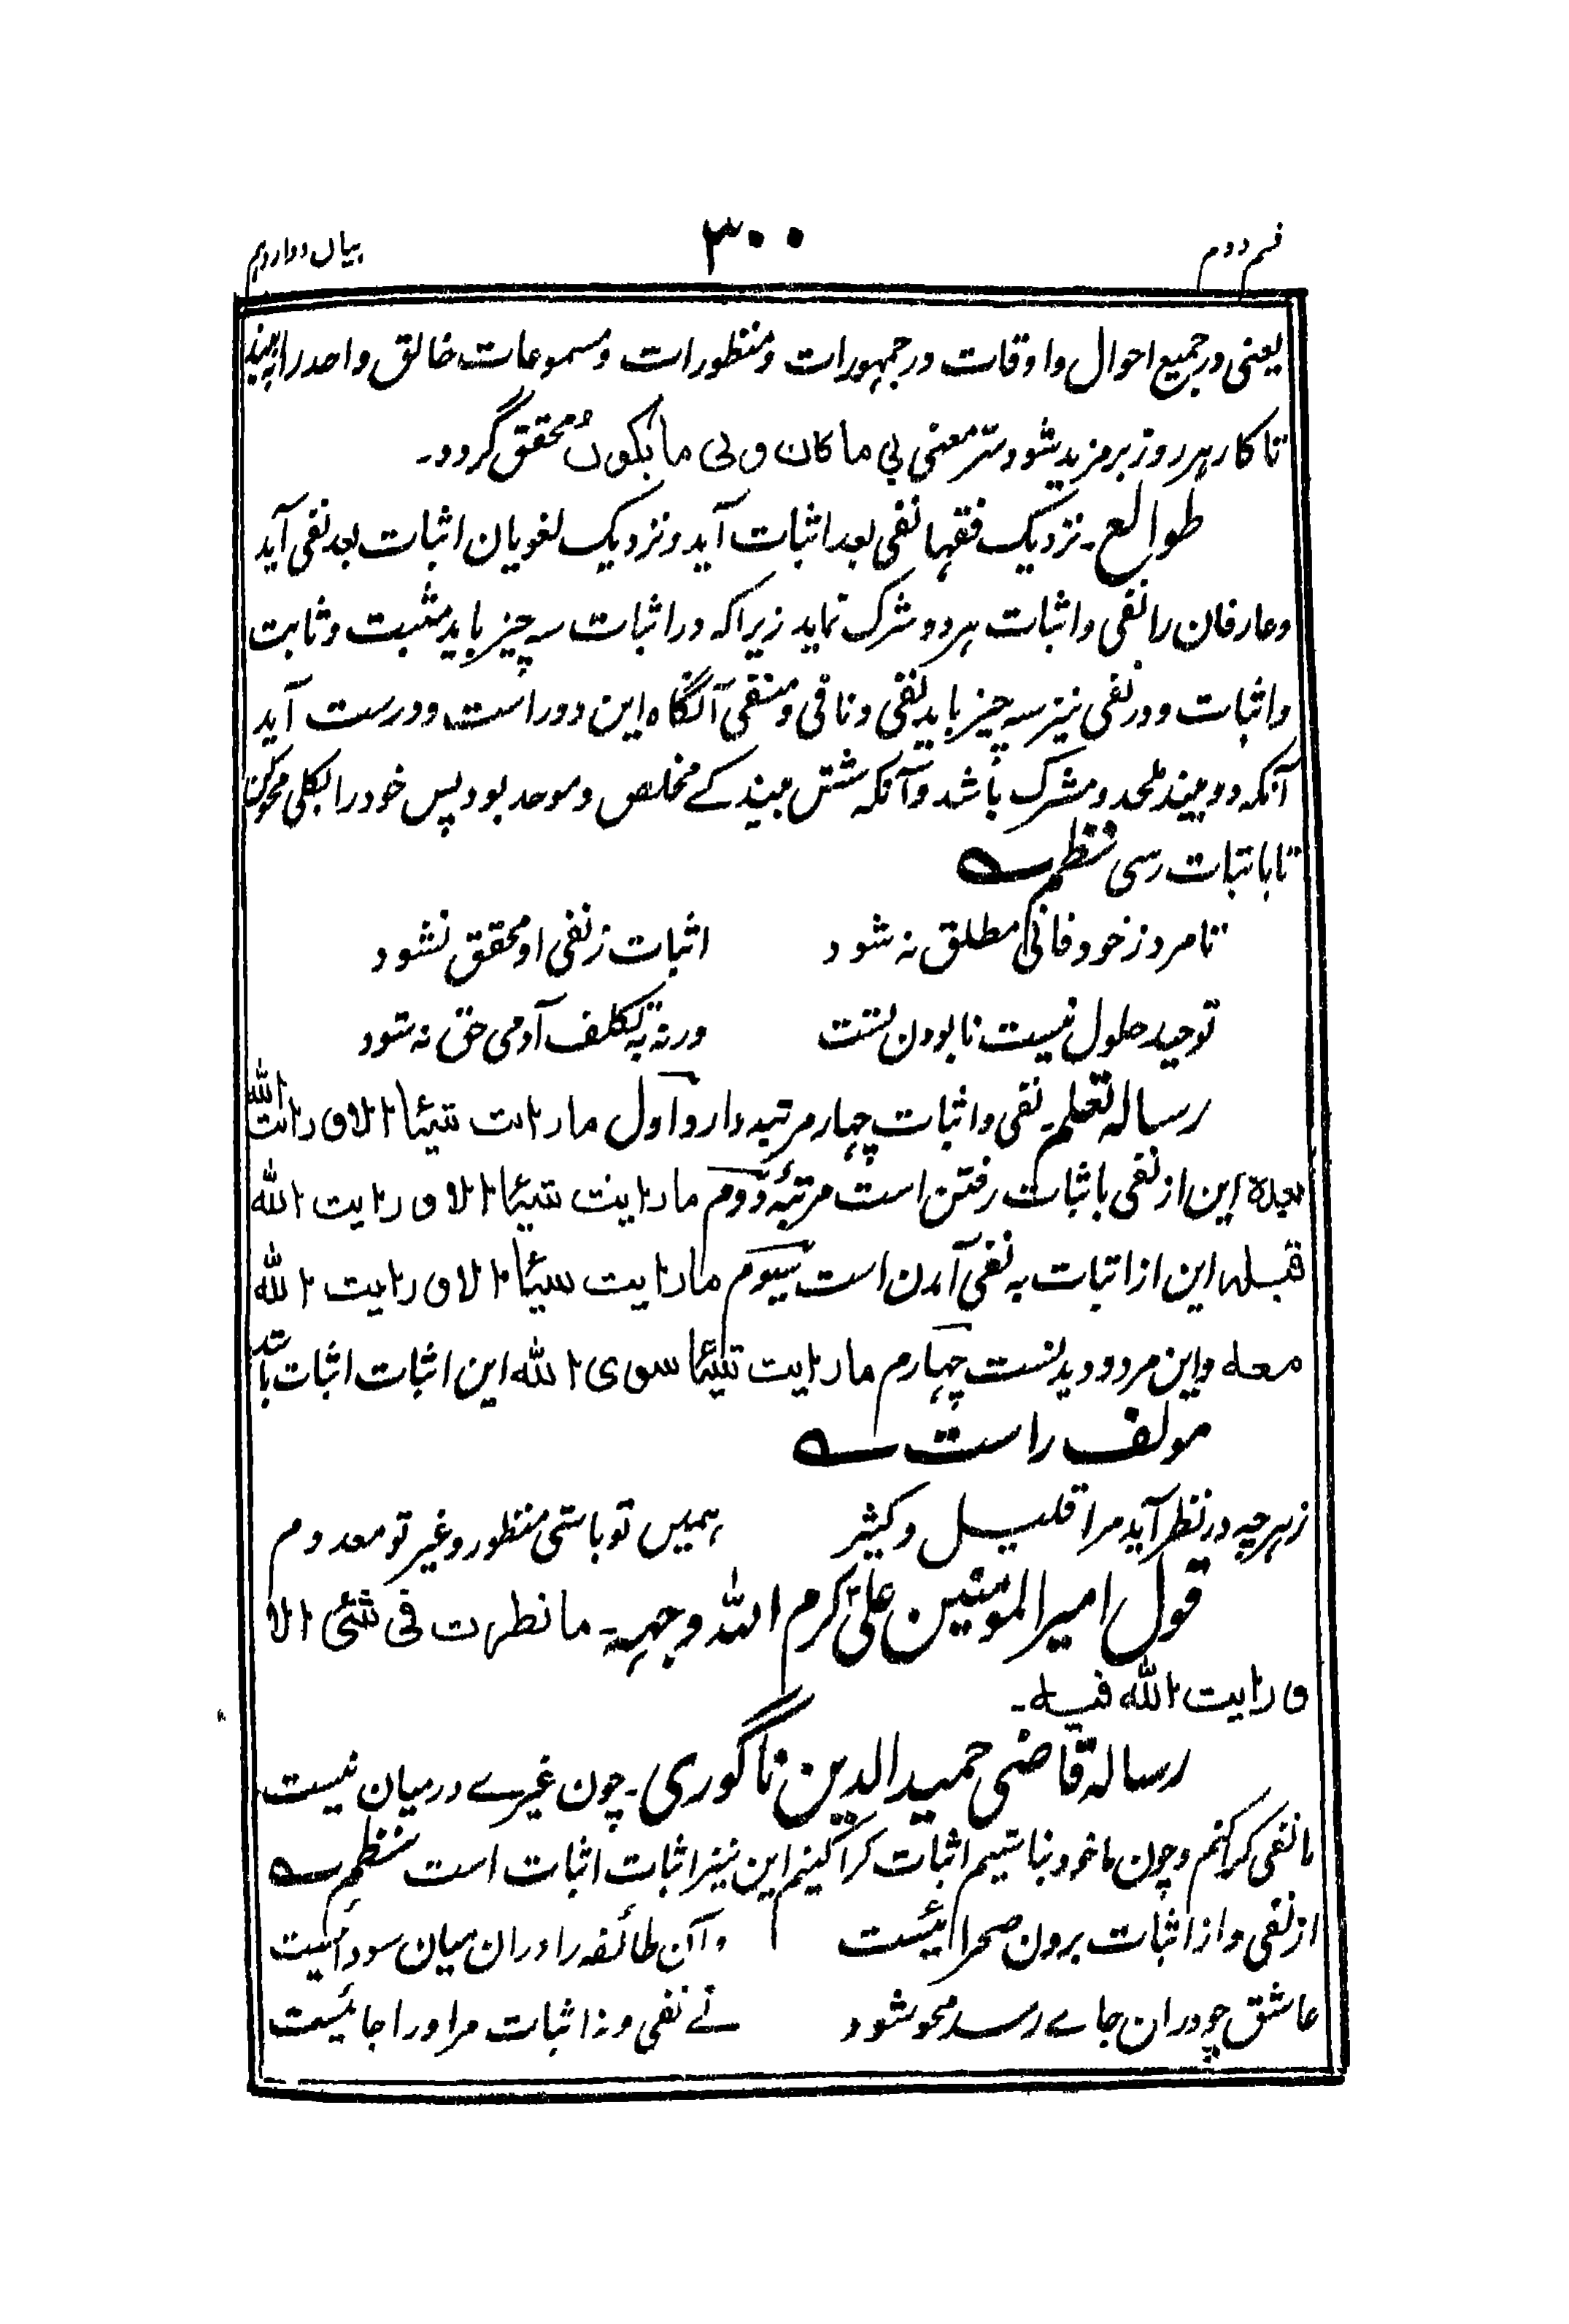 قسم دوم
۳۰۰
بیان دوازدہم
یعنی در جمیع احوال و اوقات در جمہورات و منظورات و مسموعات خالق واحد را بیند
تا کار ہر روز بر مزید شود و سر معنی بی ما کان و بی ما یکونُ محقق گردد۔
طوالع۔ نزدیک فقہا نفی بعد اثبات آید و نزدیک لغویان اثبات بعد نفی آید
و عارفان را نفی و اثبات ہر دو شرک نماید زیرا کہ در اثبات سہ چیز باید مثبت و ثابت
و اثبات و در نفی نیز سہ چیز باید نفی و نافی و منفی آنگاہ این دو راست و درست آید
آنکہ دو بیند ملحد و مشرک باشد و آنکہ شش بیند کے مخلص و موحد بود پس خود را بکلی محو کن
تا باثبات رسی نظم
تا مرد ز خود فانی مطلق نہ شود
اثبات ز نفی او محقق نشود
توحید حلول نیست نابودن تست
ورنہ بہ تکلف آدمی حق نہ شود
رسالہ نفی و اثبات چہار مرتبہ دارد اول ما رایت شیئا الا و رایت اللہ
بعدہ این از نفی باثبات رفتن است مرتبۂ دوم ما رایت شیئا الا و رایت اللہ
قبلہ این از اثبات بہ نفی آمدن است سیوم ما رایت شیئا الا و رایت اللہ
معہ و این مرد و دیدنست چہارم ما رایت شیئا سوی اللہ این اثبات اثبات باشد
مولف راست
زہر چہ در نظر آید مرا قلیل و کثیر
ہمیں تو باشی منظور و غیر تو معدوم
قول امیر المومنین علی کرم اللہ وجہہ۔ ما نظرت فی شئی الا
و رایت اللہ فیہ۔
رسالہ قاضی حمید الدین ناگوری۔ چون غیرے درمیان نیست
ما نفی کرا کنم و چون ما خود نباشیم اثبات کرا کنیم این نیز اثبات اثبات است نظم
از نفی و از اثبات برون صحرائیست
و آن طائفہ را دران میان سودائیست
عاشق چو دران جاے رسد محو شود
نے نفی و نہ اثبات مر او را جائیست